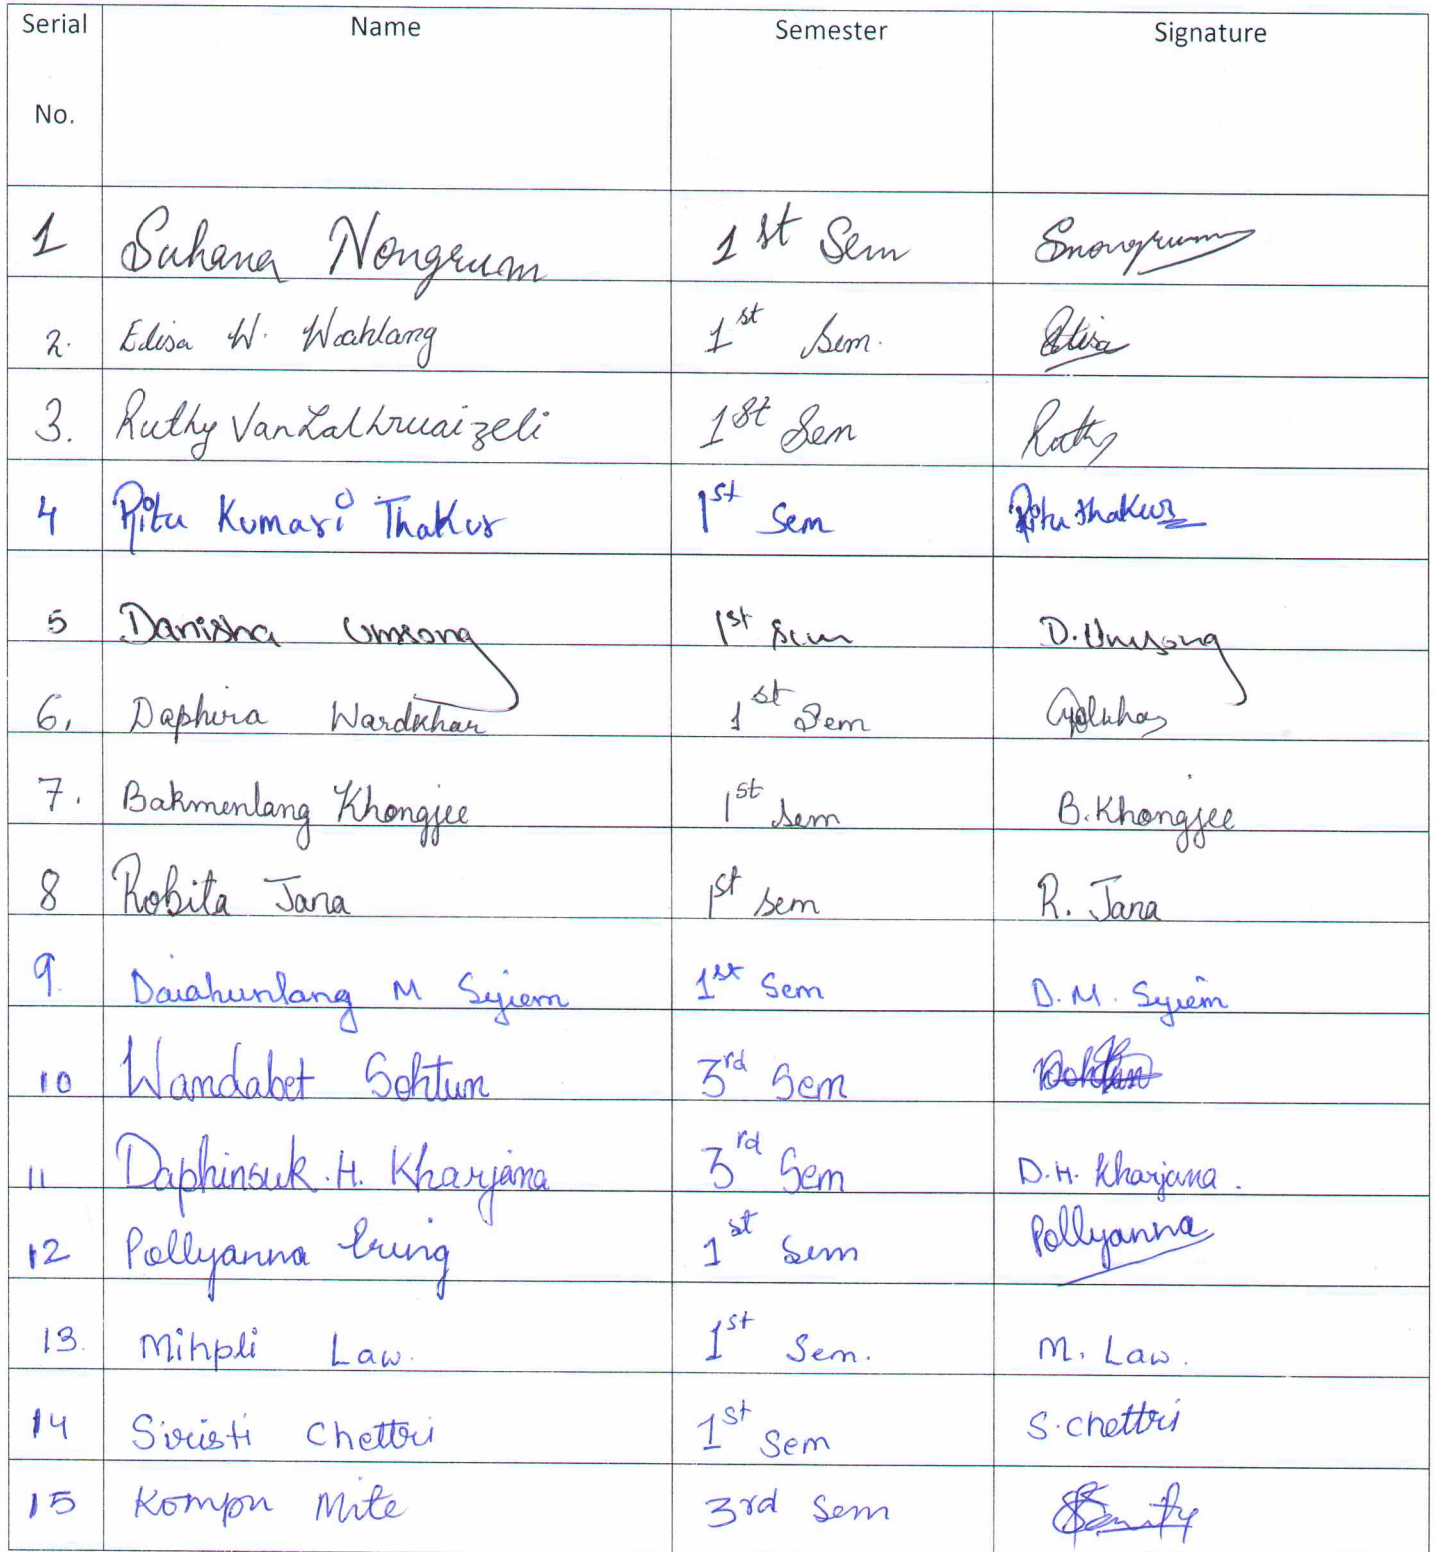 Serial No. Name Semester Signature
1 Suhana Nongrum 1st Sem Snongrum
2. Elisa W. Wahlang 1st Sem. Elisa
3. Ruthy VanLalhruaizeli 1st Sem Ruthy
4 Ritu Kumari Thakur 1st Sem Ritu Thakur
5 Danisha Umsong 1st Sem D. Umsong
6. Daphira Wardkhar 1st Sem
7. Bakmenlang Khongjee 1st Sem B. Khongjee
8 Robita Jana 1st sem R. Jana
9. Daiahunlang M Syiem 1st Sem D. M. Syiem
10 Wandabet Sohtun 3rd Sem
11 Daphinsuk. H. Kharjana 3rd Sem D. H. Kharjana.
12 Pollyanna Ering 1st Sem Pollyanna
13. Mihpli Law. 1st Sem. M. Law.
14 Siristi Chettri 1st Sem S. Chettri
15 Kompu Mite 3rd Sem